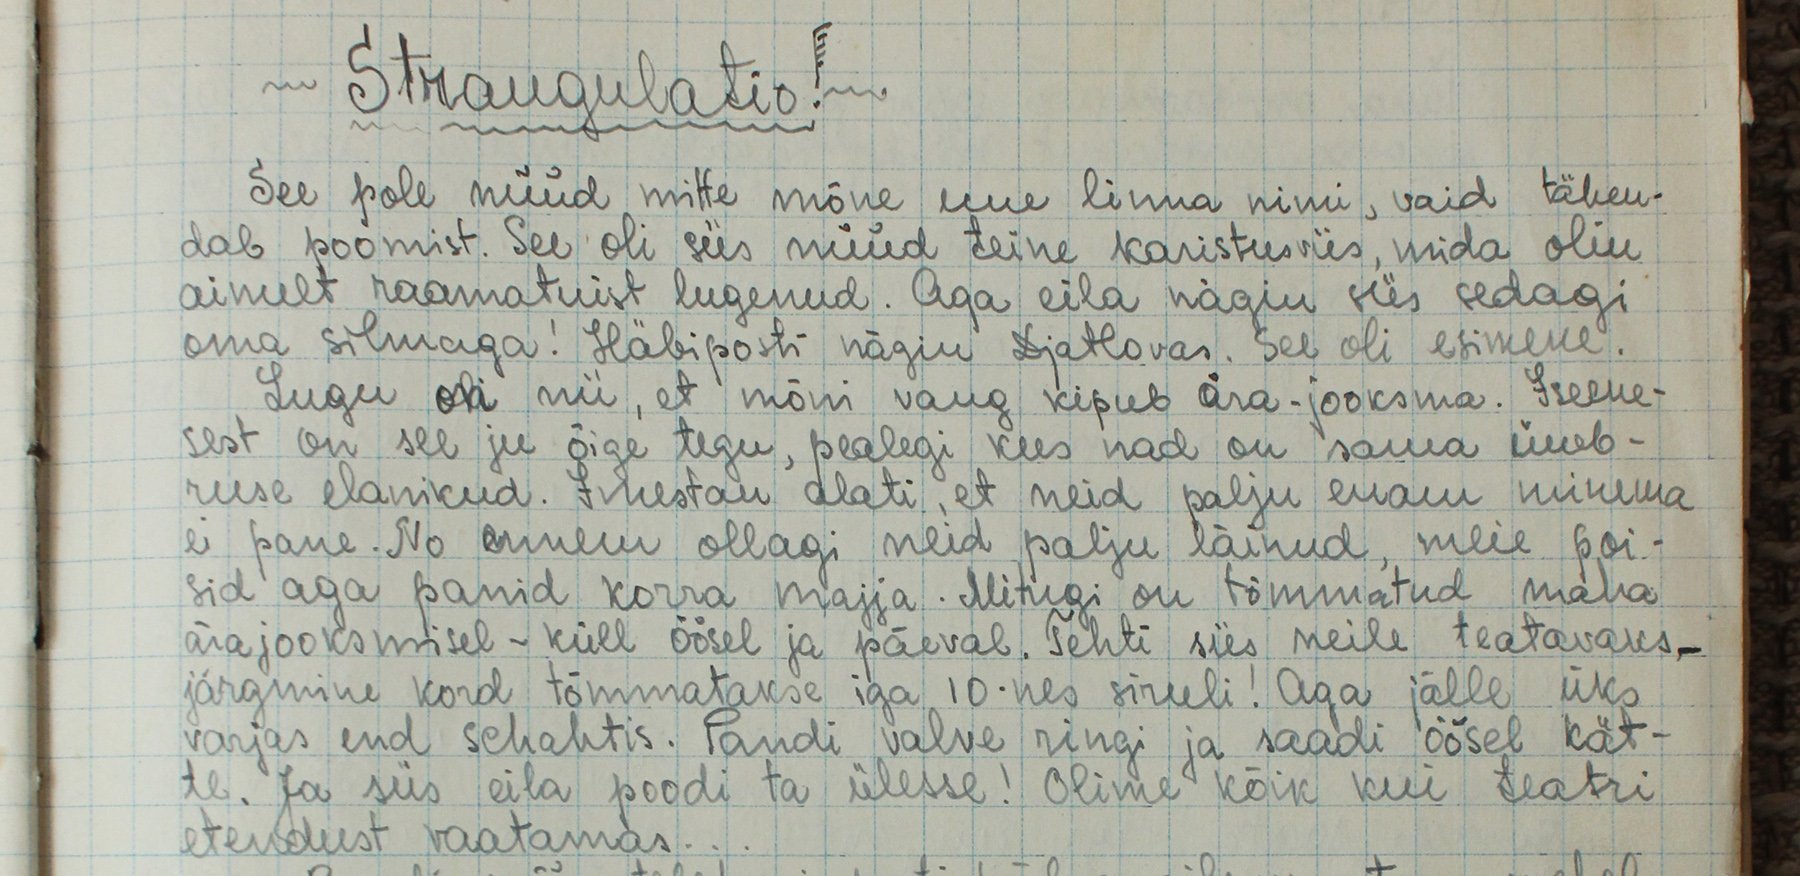 ~ Strangulatio! ~
See pole nüüd mitte mõne uue linna nimi, vaid tähen-
dab poomist. See oli siis nüüd teine karistusviis, mida olin
ainult raamatuist lugenud. Aga eila nägin siis sedagi
oma silmaga! Häbiposti nägin Djatlovas. See oli esimene.
Lugu oli nii, et mõni vang kipub ära-jooksma. Iseene-
sest on see ju õige tegu, pealegi kus nad on sama ümb-
ruse elanikud. Imestan alati, et neid palju enam minema
ei pane. No ennem ollagi neid palju läinud, meie poi-
sid aga panid korra majja. Mitugi on tõmmatud maha
ärajooksmisel - küll öösel ja päeval. Tehti siis neile teatavaks, -
järgmine kord tõmmatakse iga 10-nes siruli! Aga jälle üks
varjas end schahtis. Pandi valve ringi ja saadi öösel kät-
te. Ja siis eila poodi ta ülesse! Olime kõik kui teatri
etendust vaatamas...